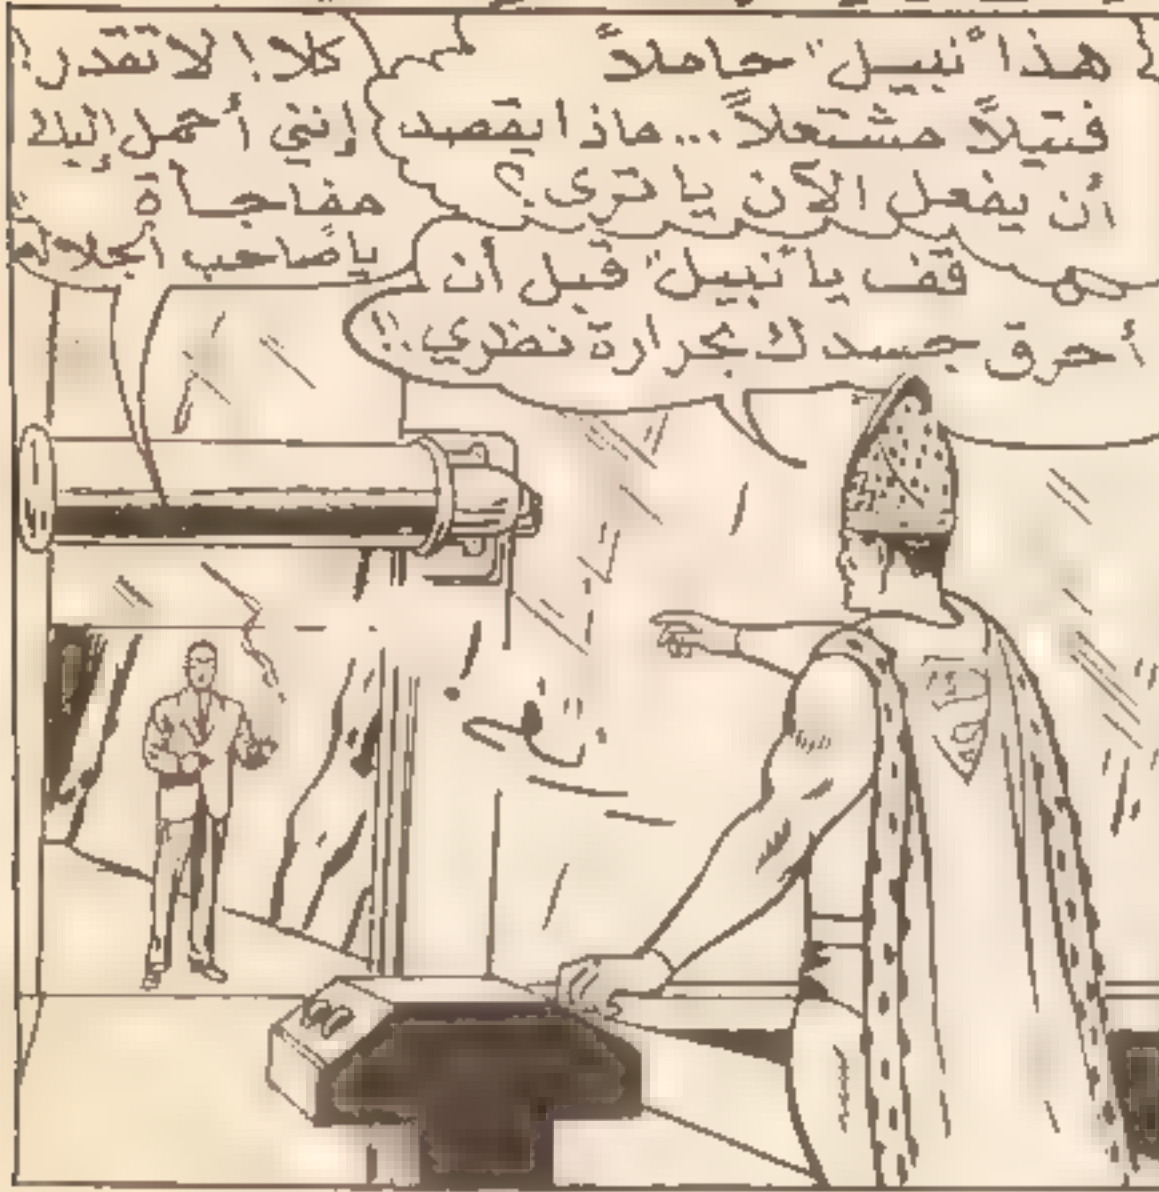 هذا "نبيل" حاملاً
فتيلاً مشتعلاً... ماذا يقصد
أن يفعل الآن يا ترى؟
قف يا "نبيل" قبل أن
أحرق جسدك بحرارة نظري!!
كلا! لا تقدر!
إنني أحمل إليك
مفاجأة
يا صاحب الجلالة